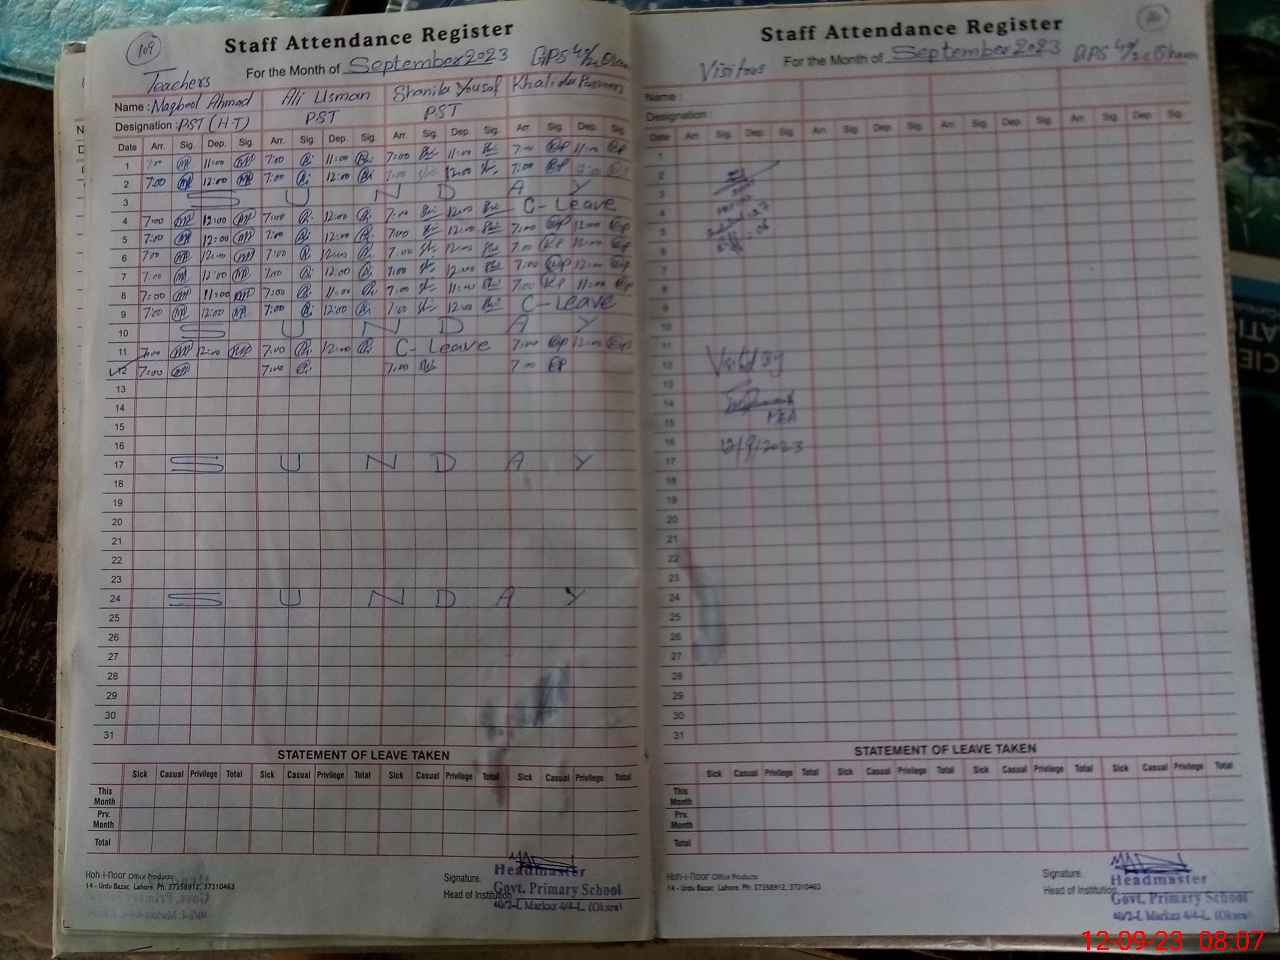 109
Staff Attendance Register
For the Month of September 2023 GPS 40/2L Okara
Teachers
Name : Maqbool Ahmad Ali Usman Shanila Yousaf Khalida Parveen
Designation : PST (H.T) PST PST
Date Arr. Sig. Dep. Sig. Arr. Sig. Dep. Sig. Arr. Sig. Dep. Sig. Arr. Sig. Dep. Sig.
1 7:00 11:00 7:00 11:00 7:00 11:00 7:00 11:00
2 7:00 12:00 7:00 12:00 7:00 12:00 7:00
3 S U N D A Y
4 7:00 12:00 7:00 12:00 7:00 12:00 C-Leave
5 7:00 12:00 7:00 12:00 7:00 12:00 7:00 12:00
6 7:00 12:00 7:00 12:00 7:00 12:00 7:00 12:00
7 7:00 12:00 7:00 12:00 7:00 12:00 7:00 12:00
8 7:00 11:00 7:00 11:00 7:00 11:00 7:00 11:00
9 7:00 12:00 7:00 12:00 7:00 12:00 C-Leave
10 S U N D A Y
11 7:00 12:00 7:00 12:00 C-Leave 7:00 12:00
12 7:00 7:00 7:00 7:00
13
14
15
16
17 S U N D A Y
18
19
20
21
22
23
24 S U N D A Y
25
26
27
28
29
30
31
STATEMENT OF LEAVE TAKEN
Sick Casual Privilege Total Sick Casual Privilege Total Sick Casual Privilege Total Sick Casual Privilege Total
This Month
Prv. Month
Total
Koh-i-Noor Office Products
14 - Urdu Bazar, Lahore. Ph: 37358912, 37310463
Signature.
Head of Institution
Headmaster
Govt. Primary School
40/2-L Markaz 4/4-L. (Okara)
Staff Attendance Register
For the Month of September 2023 GPS 40/2L Okara
Visitors
Name :
Designation
Date Arr. Sig. Dep. Sig. Arr. Sig. Dep. Sig. Arr. Sig. Dep. Sig. Arr. Sig. Dep. Sig.
1
2
3
4
5
6
7
8
9
10
11
12 Visited by
13
14
15 MEA
16 12/9/2023
17
18
19
20
21
22
23
24
25
26
27
28
29
30
31
STATEMENT OF LEAVE TAKEN
Sick Casual Privilege Total Sick Casual Privilege Total Sick Casual Privilege Total Sick Casual Privilege Total
This Month
Prv. Month
Total
Koh-i-Noor Office Products
14 - Urdu Bazar, Lahore. Ph: 37358912, 37310463
Signature.
Head of Institution
Headmaster
Govt. Primary School
40/2-L Markaz 4/4-L. (Okara)
12-09-23 08:07